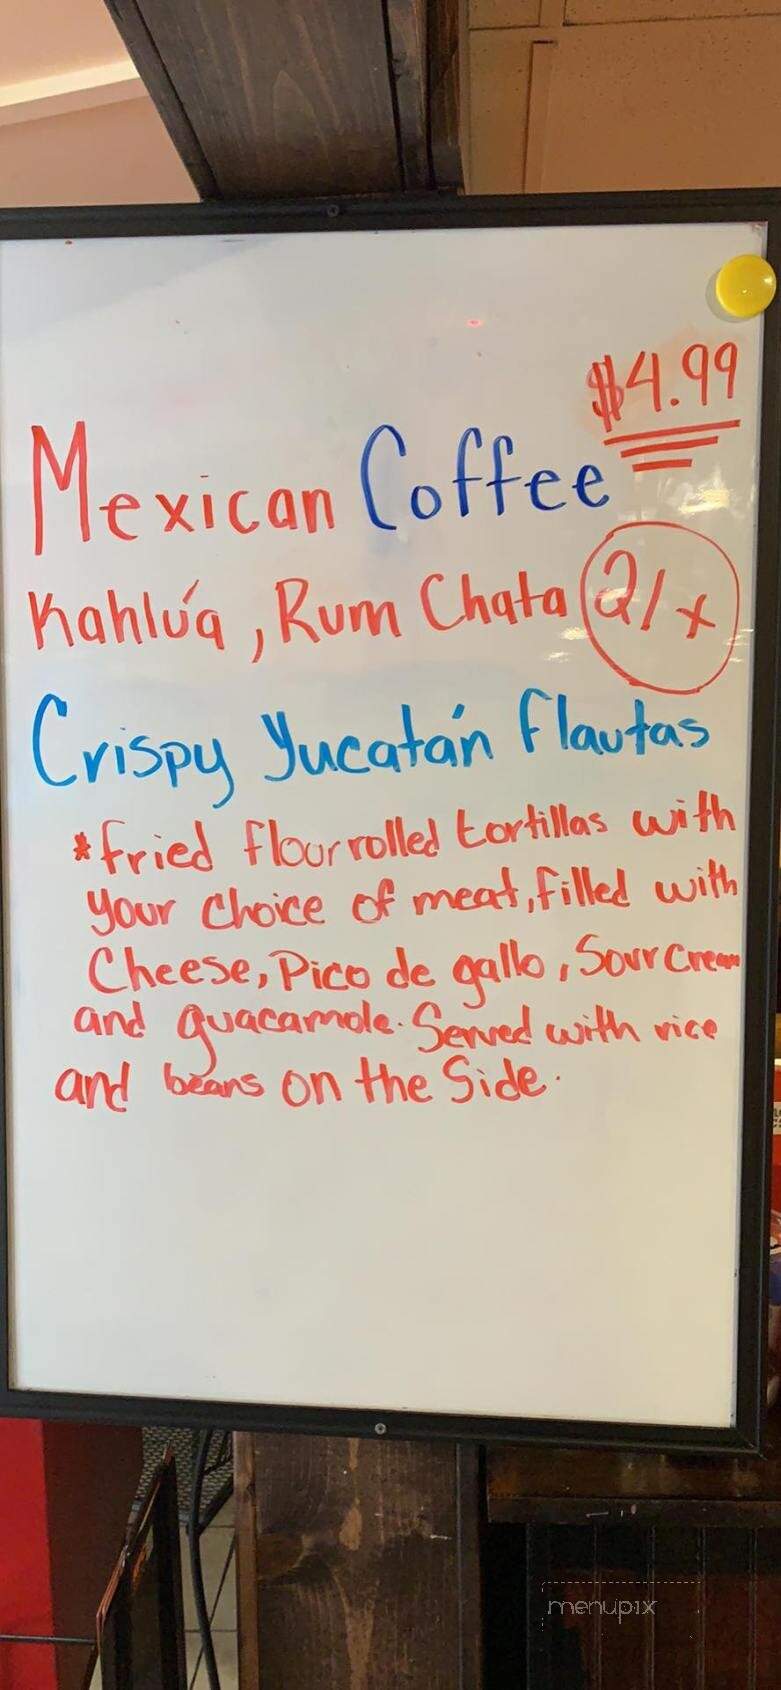 $4.99
Mexican Coffee
Kahlúa, Rum Chata 2/x
Crispy Yucatán flautas
*fried flour rolled tortillas with
your choice of meat, filled with
Cheese, Pico de gallo, Sour cream
and guacamole. Served with rice
and beans on the Side.
menupix